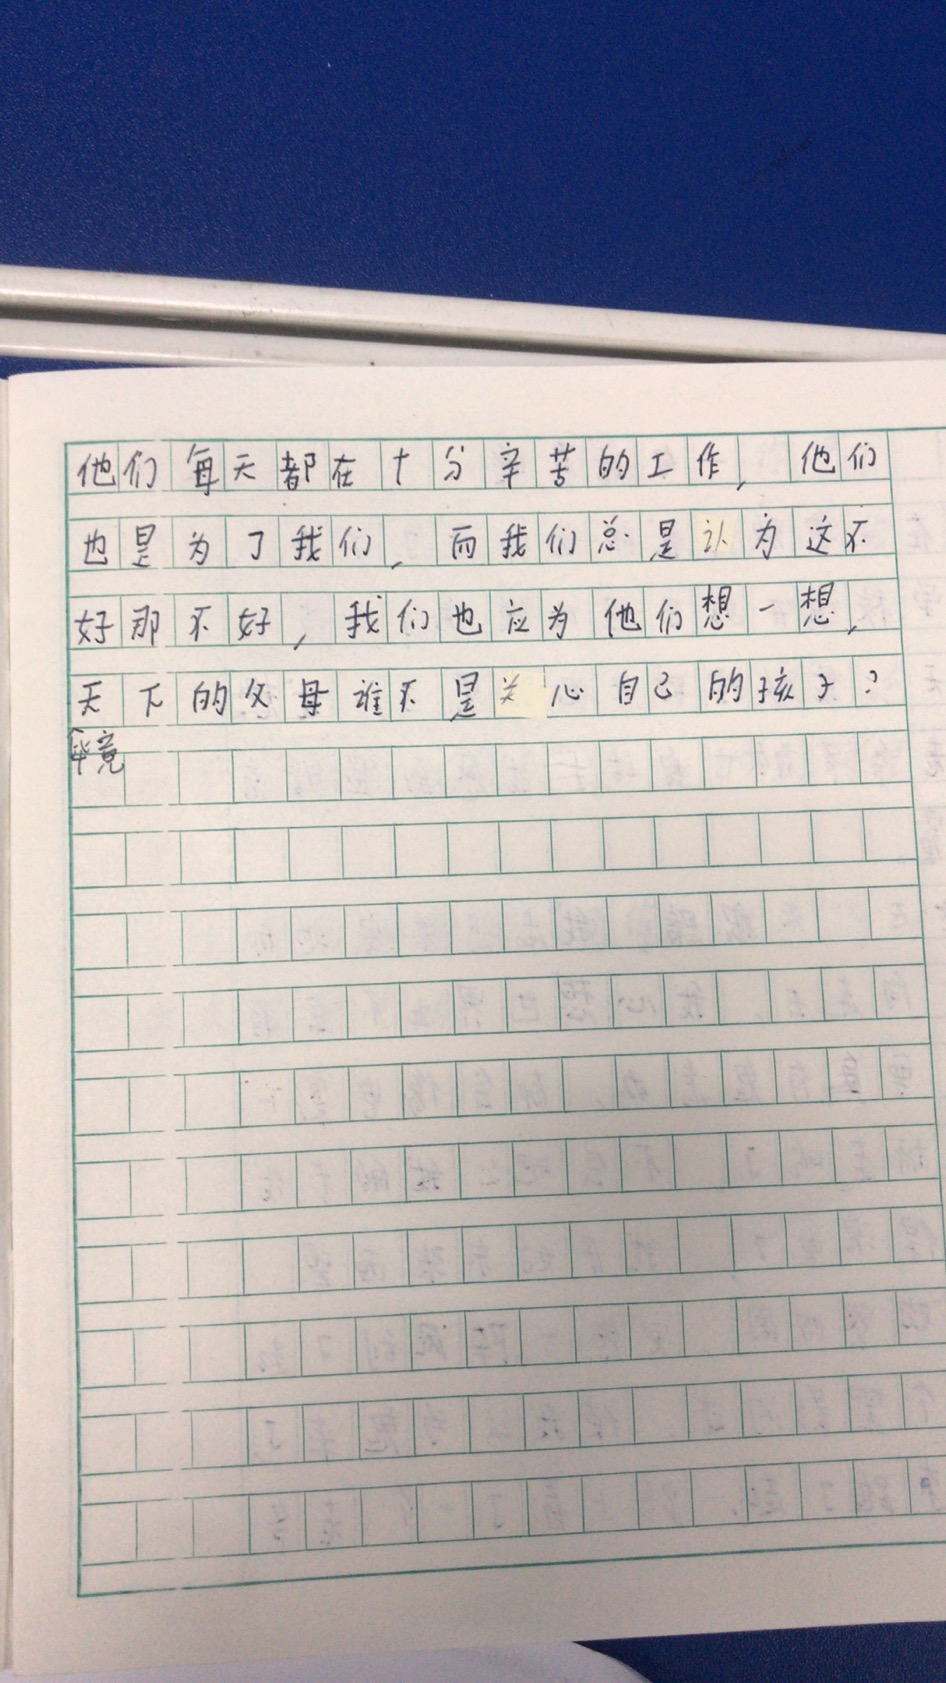 他们每天都在十分辛苦的工作，他们
也是为了我们，而我们总是认为这不
好那不好，我们也应为他们想一想，
天下的父母谁不是关心自己的孩子？
毕竟